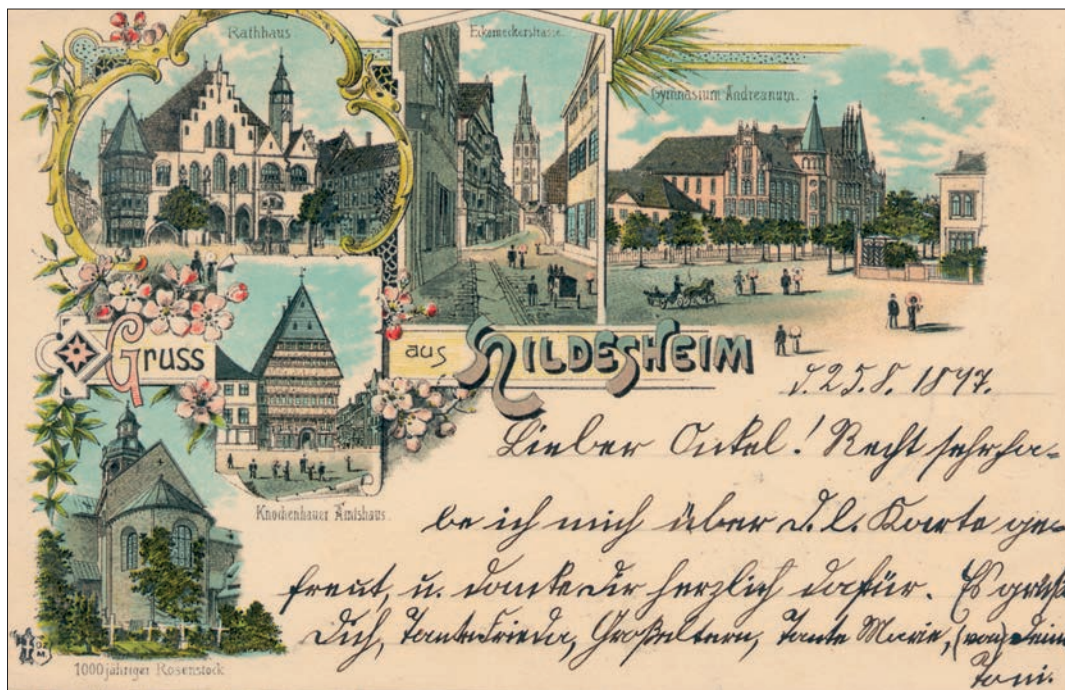 Rathhaus
Eckemeckerstrasse.
Gymnasium Andreanum.
Gruss aus HILDESHEIM
Knochenhauer Amtshaus.
1000 jähriger Rosenstock
d. 25.8. 1897.
Lieber Onkel! Recht sehr ha-
be ich mich über D. l. Karte ge-
freut, u. danke Dir herzlich dafür. Es grüßt
Dich, Tante Frieda, Großeltern, Tante Marie, (von) Dein
Toni.